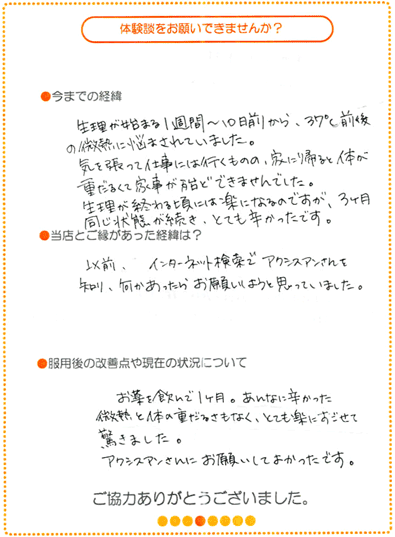 体験談をお願いできませんか?
●今までの経緯
生理が始まる1週間~10日前から、37℃前後
の微熱に悩まされていました。
気を張って仕事には行くものの、家に帰ると体が
重だるくて家事が殆どできませんでした。
生理が終わる頃には楽になるのですが、3ヶ月
同じ状態が続き、とても辛かったです。
●当店とご縁があった経緯は?
以前、インターネット検索でアクシスアンさんを
知り、何かあったらお願いしようと思っていました。
●服用後の改善点や現在の状況について
お薬を飲んで1ヶ月。あんなに辛かった
微熱と体の重だるさもなく、とても楽にすごせて
驚きました。
アクシスアンさんにお願いしてよかったです。
ご協力ありがとうございました。